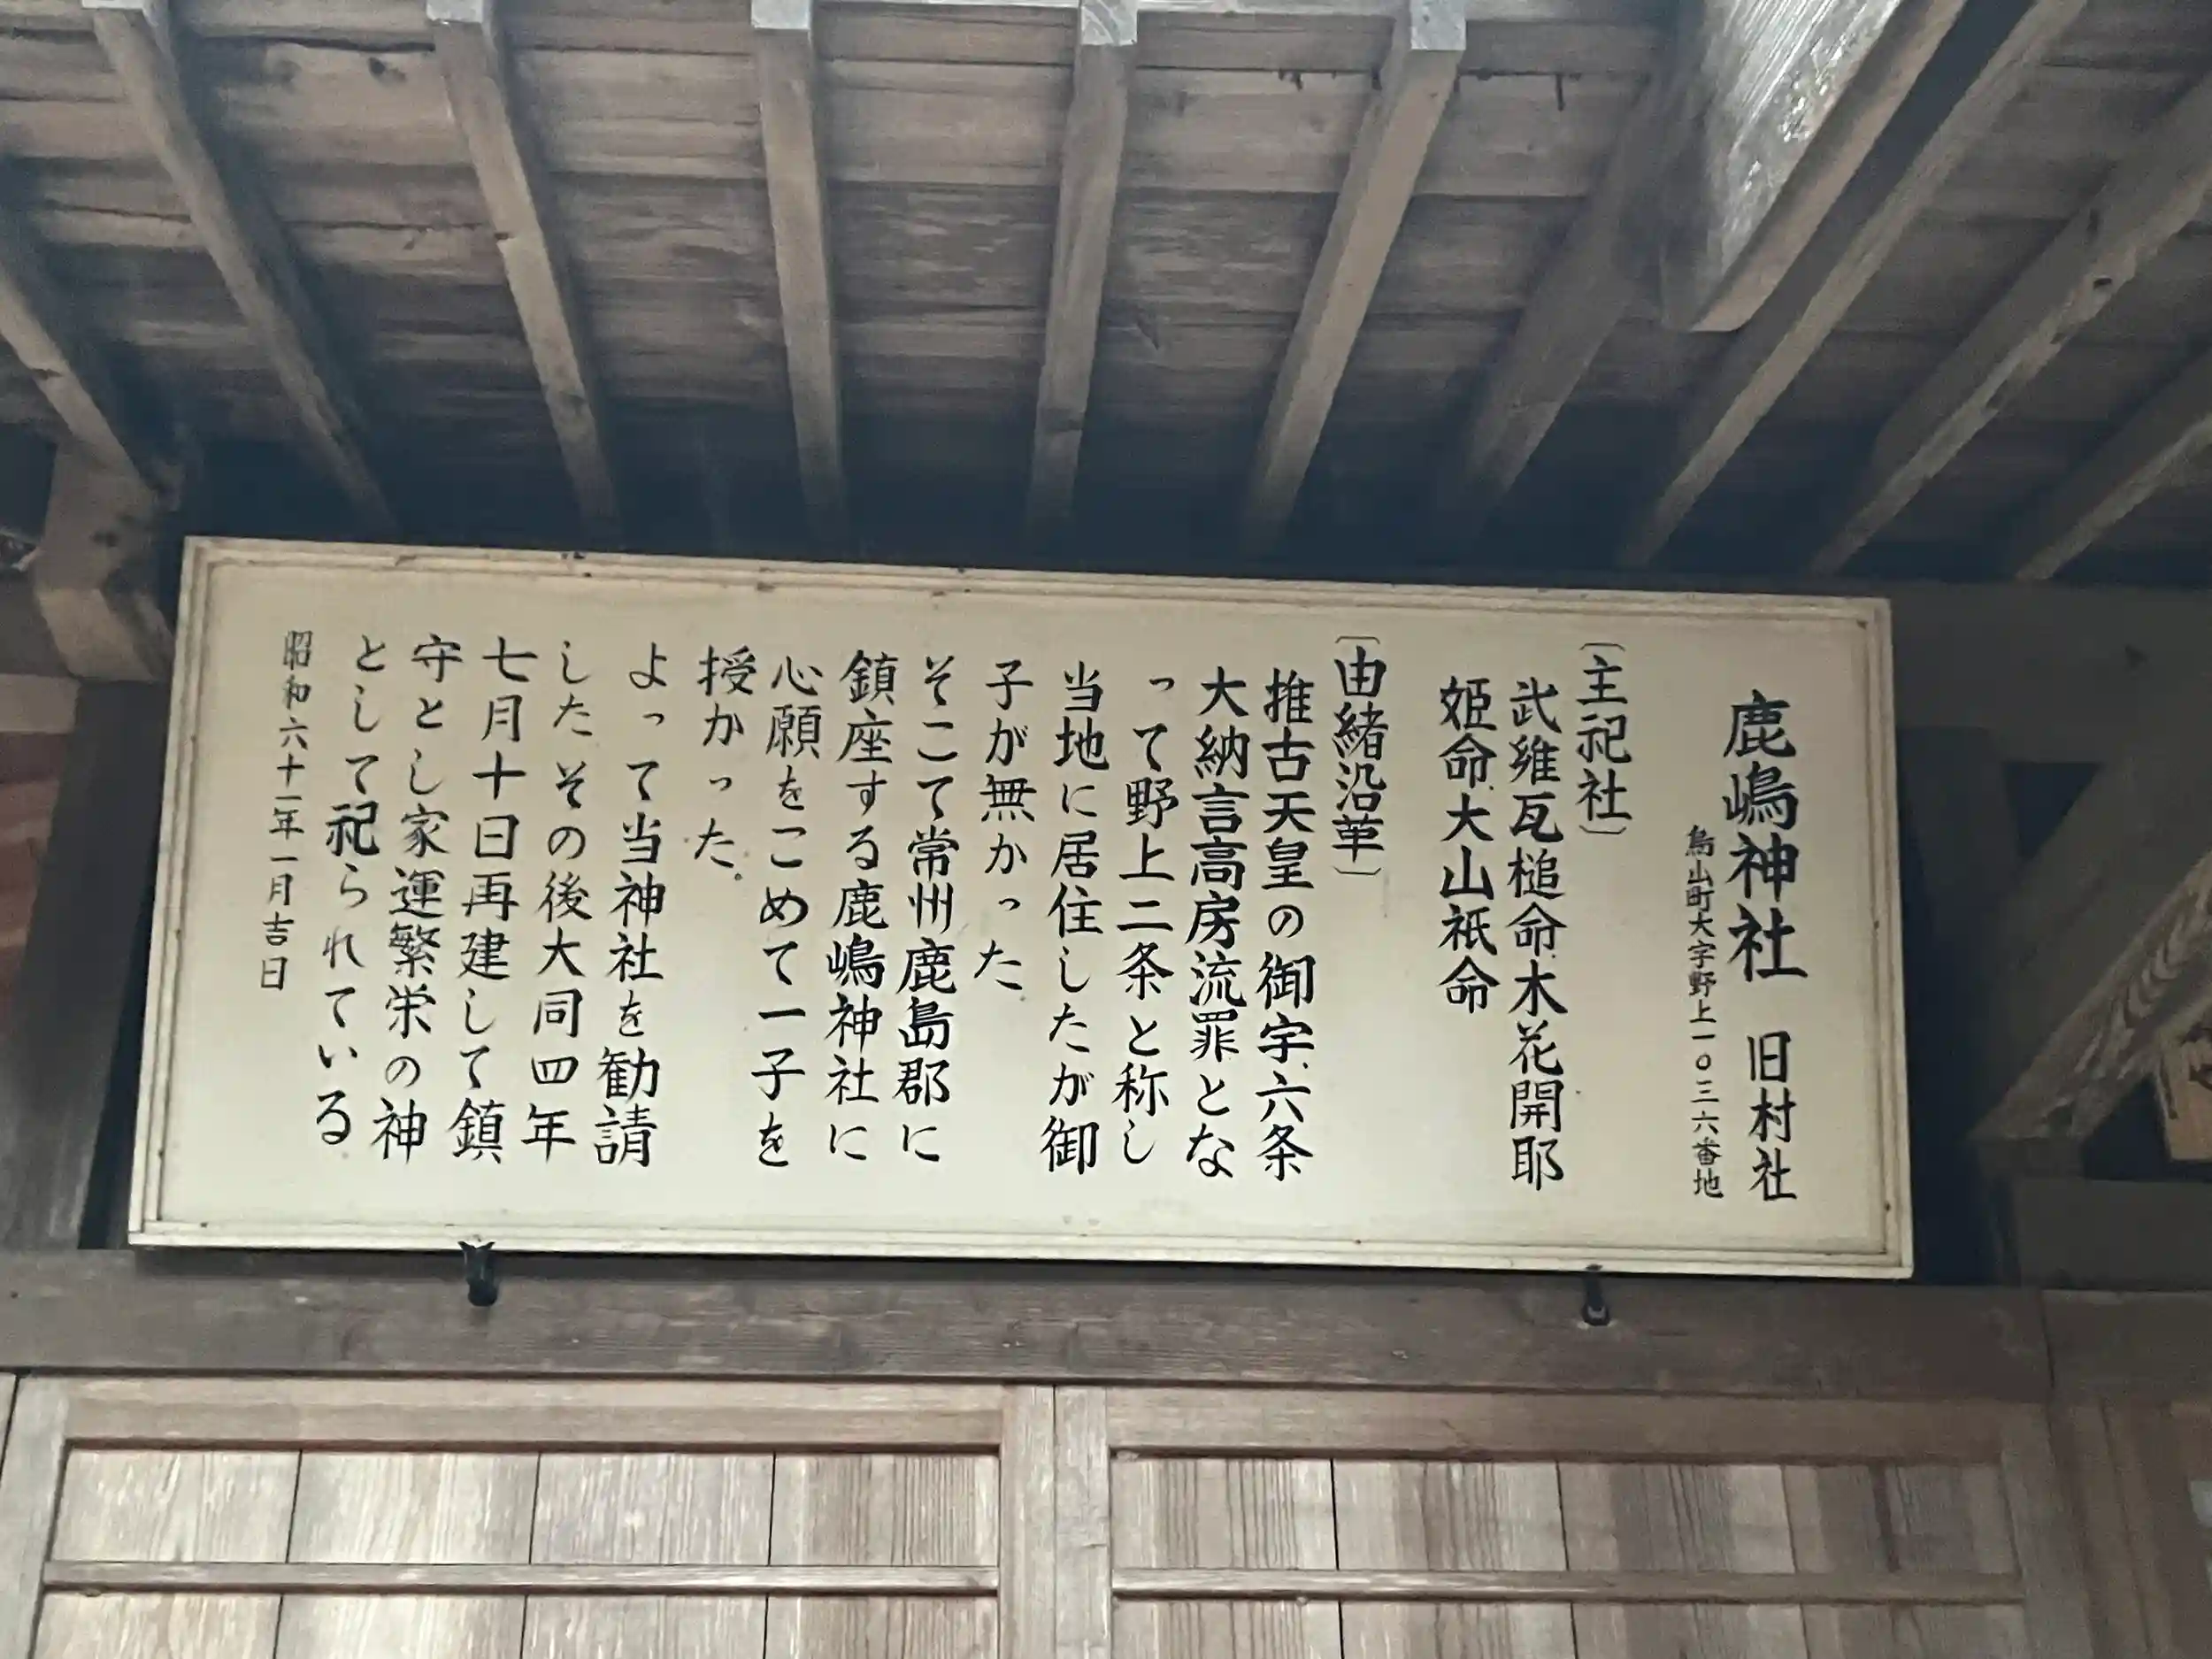 鹿嶋神社 旧村社
烏山町大字野上一〇三六番地
〔主祀社〕
武雍瓦槌命.木花開耶
姫命.大山祇命
〔由緒沿革〕
推古天皇の御宇.六条
大納言高房流罪とな
って野上二条と称し
当地に居住したが御
子が無かった.
そこて常州鹿島郡に
鎮座する鹿嶋神社に
心願をこめて一子を
授かった。
よって当神社を勧請
したその後大同四年
七月十日再建して鎮
守とし家運繁栄の神
として祀られている
昭和六十一年一月吉日